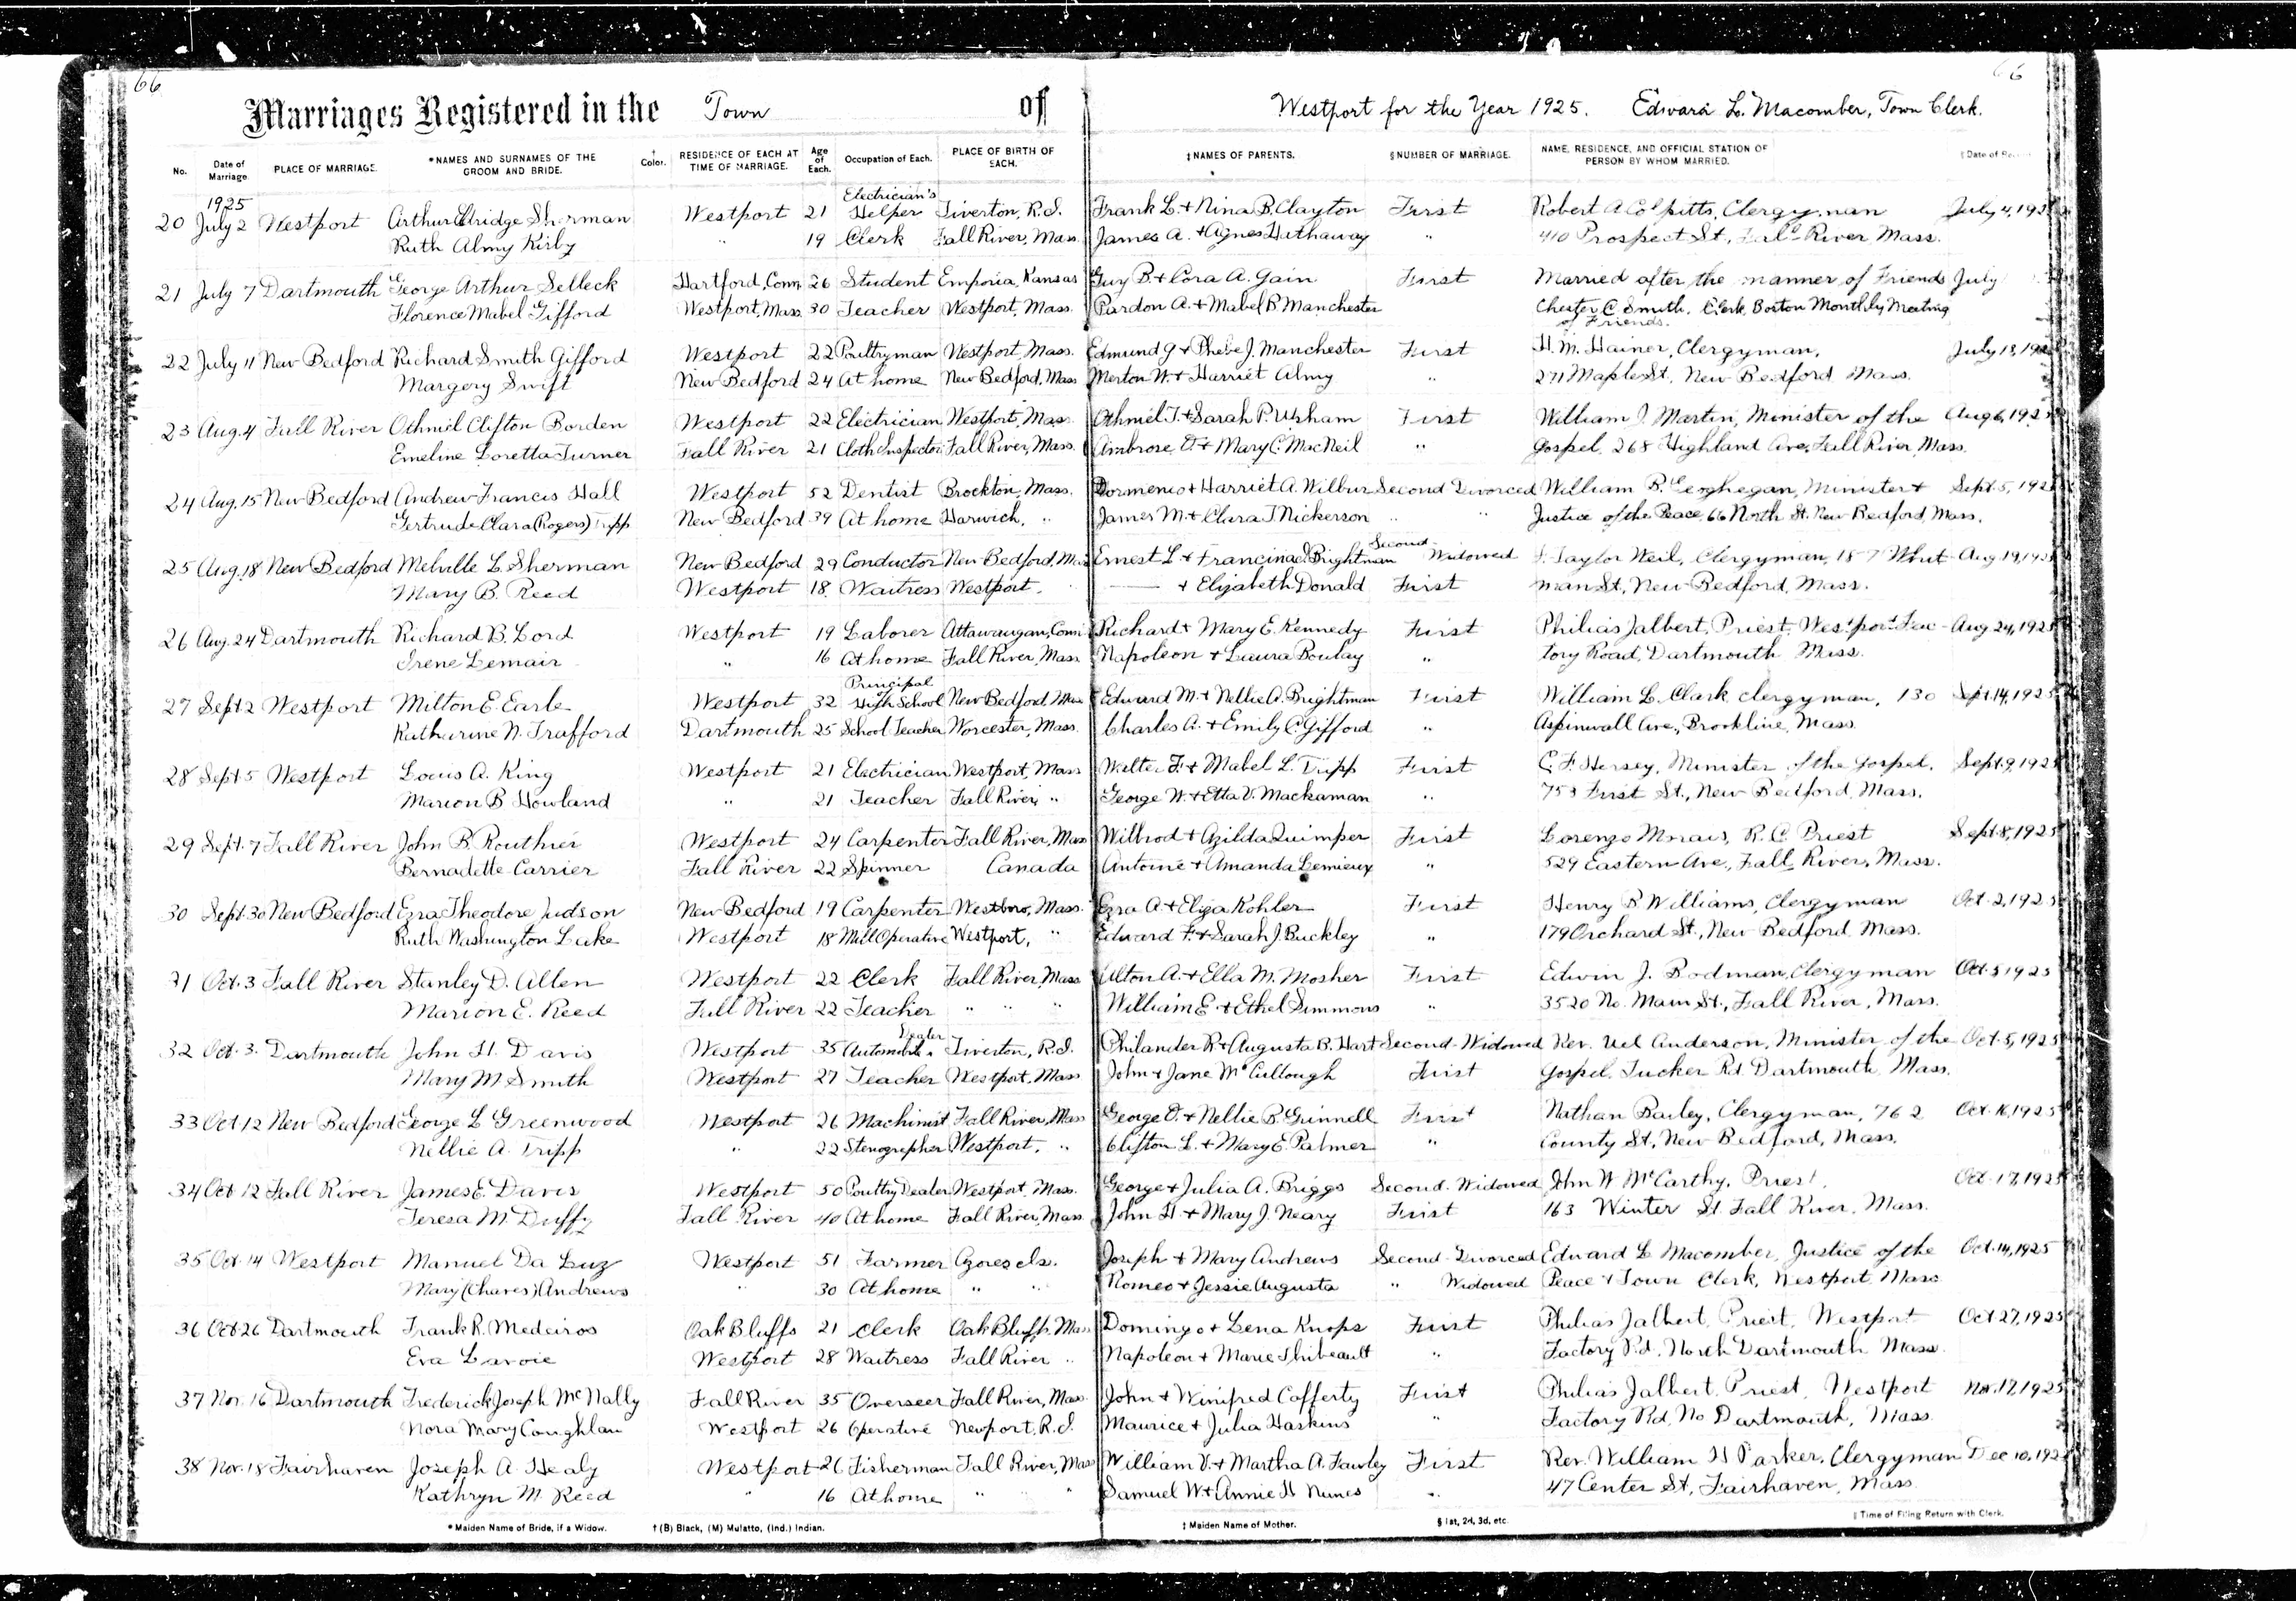 66
66
Marriages Registered in the Town of Westport for the Year 1925. Edward L. Macomber, Town Clerk.
No. Date of Marriage. PLACE OF MARRIAGE. *NAMES AND SURNAMES OF THE GROOM AND BRIDE. † Color. RESIDENCE OF EACH AT TIME OF MARRIAGE. Age of Each. Occupation of Each. PLACE OF BIRTH OF EACH. ‡NAMES OF PARENTS. §NUMBER OF MARRIAGE. NAME, RESIDENCE, AND OFFICIAL STATION OF PERSON BY WHOM MARRIED. Date of
1925 Electrician's
20 July 2 Westport Arthur Elridge Sherman Westport 21 Helper Tiverton, R.I. Frank L. + Nina B. Clayton First Robert A Colpitts, Clergyman July 4, 192
Ruth Almy Kirby " 19 Clerk Fall River, Mass. James A. + Agnes Hathaway " 410 Prospect St., Fall River, Mass.
21 July 7 Dartmouth George Arthur Selleck Hartford, Conn. 26 Student Emporia, Kansas Guy B. + Cora A. Gain First Married after the manner of Friends July
Florence Mabel Gifford Westport, Mass. 30 Teacher Westport, Mass. Pardon A. + Mabel R. Manchester Chester C. Smith, Clerk, Boston Monthly Meeting
of Friends.
22 July 11 New Bedford Richard Smith Gifford Westport 22 Poultryman Westport, Mass. Edmund G + Phebe J. Manchester First H. M. Hainer, Clergyman, July 13, 192
Margery Swift New Bedford 24 At home New Bedford, Mass Merton W. + Harriet Almy " 271 Maple St., New Bedford Mass.
23 Aug. 4 Fall River Othniel Clifton Borden Westport 22 Electrician Westport, Mass Othniel T. + Sarah P. Upham First William J. Martin, Minister of the Aug 6, 192
Emeline Loretta Turner Fall River 21 Cloth Inspector Fall River, Mass. Ambrose + Mary C. MacNeil " Gospel, 268 Highland Ave, Fall River, Mass.
24 Aug. 15 New Bedford Andrew Francis Hall Westport 52 Dentist Brockton, Mass. + Harriet A. Wilbur Second Divorced William B. Geoghegan, Minister + Sept. 5, 192
Gertrude Clara (Rogers) Tripp New Bedford 39 At home Harwich, " James M. + Clara T. Nickerson " " Justice of the Peace, 66 North St. New Bedford, Mass.
Second
25 Aug. 18 New Bedford Melville L. Sherman New Bedford 29 Conductor New Bedford, Mass Ernest L + Francina Brightman Widowed Taylor Weil, Clergyman, 187 Whit- Aug 19, 192
Mary B. Reed Westport 18 Waitress Westport. — + Elizabeth Donald First man St, New Bedford, Mass.
26 Aug. 24 Dartmouth Richard B. Lord Westport 19 Laborer Attawaugan, Conn Richard + Mary E. Kennedy First Philias Jalbert, Priest, Westport Fac- Aug 24, 1925
Irene Lemair " 16 At home Fall River, Mass Napoleon + Laura Boulay " tory Road, Dartmouth Mass.
Principal
27 Sept 2 Westport Milton E. Earle Westport 32 High School New Bedford, Mass Edward M. + Nellie A. Brightman First William L. Clark clergyman, 130 Sept. 14, 1925
Katharine N. Trafford Dartmouth 25 School Teacher Worcester, Mass. Charles A. + Emily C. Gifford " Aspinwall Ave., Brookline, Mass.
28 Sept 5 Westport Louis A. King Westport 21 Electrician Westport, Mass Walter F. + Mabel L. Tripp First C. F. Hersey, Minister of the Gospel, Sept. 9, 1925
Marion B Howland " 21 Teacher Fall River, " George W. + Etta V. Mackaman " 753 First St., New Bedford, Mass.
29 Sept. 7 Fall River John B. Routhier Westport 24 Carpenter Fall River, Mass Wilbrod + Azilda Quimper First Lorenzo Morais, R. C. Priest Sept. 8, 1925
Bernadette Carrier Fall River 22 Spinner Canada Antoine + Amanda Lemieux " 529 Eastern Ave., Fall River, Mass.
30 Sept. 30 New Bedford Ezra Theodore Judson New Bedford 19 Carpenter Westboro, Mass. Ezra A + Eliza Kohler First Henry B. Williams, Clergyman Oct. 2, 1925
Ruth Washington Luke Westport 18 Mill Operative Westport, " Edward F. + Sarah J. Buckley " 179 Orchard St., New Bedford, Mass.
31 Oct. 3 Fall River Stanley D. Allen Westport 22 Clerk Fall River, Mass Alton A. + Ella M. Mosher First Edwin J. Rodman, Clergyman Oct. 5 1925
Marion E. Reed Fall River 22 Teacher " " " William E. + Ethel Simmons " 3520 No. Main St., Fall River, Mass.
Dealer
32 Oct. 3. Dartmouth John H. Davis Westport 35 Automobile Tiverton, R.I. Philander R + Augusta B. Hart Second Widowed Rev. Uel Anderson, Minister of the Oct. 5, 1925
Mary M Smith Westport 27 Teacher Westport, Mass John + Jane McCullough First Gospel, Tucker Rd. Dartmouth, Mass.
33 Oct 12 New Bedford George L Greenwood Westport 26 Machinist Fall River, Mass George O. + Nellie B. Grinnell First Nathan Bailey, Clergyman, 762 Oct. 16, 1925
Nellie A. Tripp " 22 Stenographer Westport, " Clifton L. + Mary E. Palmer " County St., New Bedford, Mass.
34 Oct 12 Fall River James E. Davis Westport 50 Poultry Dealer Westport, Mass. George + Julia A. Briggs Second Widowed John W McCarthy, Priest. Oct. 17, 1925
Teresa M. Duffy Fall River 40 At home Fall River, Mass John H + Mary J. Neary First 163 Winter St. Fall River, Mass.
35 Oct. 14 Westport Manuel Da Luz Westport 51 Farmer Azores Is. Joseph + Mary Andrews Second Divorced Edward L Macomber, Justice of the Oct. 14, 1925
Mary (Chaves) Andrews " 30 At home " " Romeo + Jessie Augusta " Widowed Peace + Town Clerk, Westport, Mass
36 Oct 26 Dartmouth Frank R. Medeiros Oak Bluffs 21 Clerk Oak Bluffs, Mass Domingo + Lena Knops First Philias Jalbert, Priest, Westport Oct 27, 1925
Eva Lavoie Westport 28 Waitress Fall River " Napoleon + Marie Thibeault " Factory Rd. North Dartmouth Mass.
37 Nov. 16 Dartmouth Frederick Joseph McNally Fall River 35 Overseer Fall River, Mass. John + Winifred Cafferty First Philias Jalbert, Priest, Westport Nov. 17, 1925
Nora Mary Coughlan Westport 26 Operative Newport, R.I. Maurice + Julia Haskins " Factory Rd, No Dartmouth, Mass.
38 Nov. 18 Fairhaven Joseph A. Healy Westport 26 Fisherman Fall River, Mass William V. + Martha A. Fawley First Rev. William H Parker, Clergyman Dec 10, 192
Kathryn M. Reed " 16 At home " " Samuel W + Annie H Nunes " 47 Center St, Fairhaven, Mass.
*Maiden Name of Bride, if a Widow. †(B) Black, (M) Mulatto, (Ind.) Indian. ‡Maiden Name of Mother. §1st, 2d, 3d, etc. ‖Time of Filing Return with Clerk.